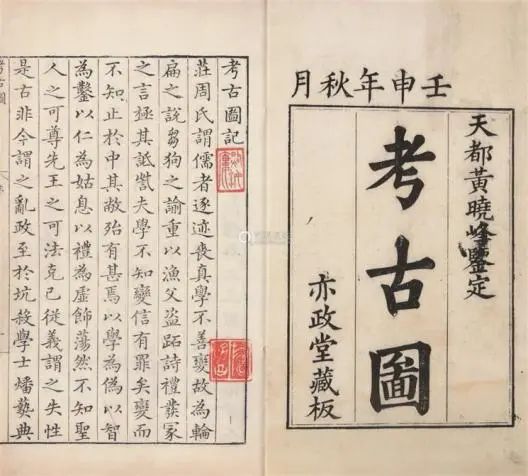 壬申年秋月
天都黃曉峰鑒定
考古圖
亦政堂藏板
考古圖記
莊周氏謂儒者逐迹喪真學不善變故為輪
扁之說芻狗之諭重以漁父盜跖詩禮發冢
之言極其詆訾夫學不知變信有罪矣變而
不知止於中其敝殆有甚焉以學為偽以智
為鑿以仁為姑息以禮為虛飾蕩然不知聖
人之可尊先王之可法克己從義謂之失性
是古非今謂之亂政至於坑殺學士燔爇典
考古圖